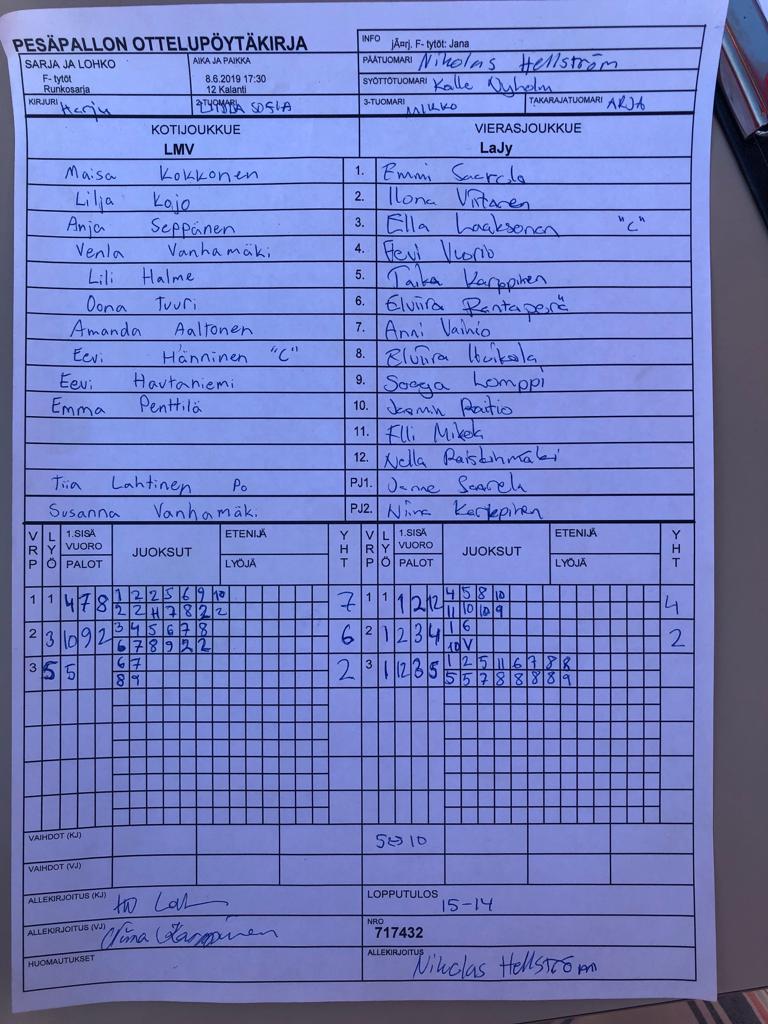 PESÄPALLON OTTELUPÖYTÄKIRJA
INFO jÃ¤rj. F- tytöt: Jana
SARJA JA LOHKO
F- tytöt
Runkosarja
AIKA JA PAIKKA
8.6.2019 17:30
12 Kalanti
PÄÄTUOMARI Nikolas Hellström
SYÖTTÖTUOMARI Kalle Nyholm
KIRJURI Harju
2-TUOMARI SOFIA
3-TUOMARI MIKKO
TAKARAJATUOMARI ARJA
KOTIJOUKKUE
LMV
VIERASJOUKKUE
LaJy
Maisa Kokkonen 1. Emmi Saarela
Lilja Kojo 2. Ilona Virtanen
Anja Seppänen 3. Ella Laaksonen "C"
Venla Vanhamäki 4. Eevi Vuorio
Lili Halme 5. Taika Karppinen
Oona Tuuri 6. Elviira Rantaperä
Amanda Aaltonen 7. Anni Vainio
Eevi Hänninen "C" 8. Elviira
Eevi Hautaniemi 9. Lomppi
Emma Penttilä 10. Jasmin Raitio
11. Elli Mikola
12. Nella
Tiia Lahtinen Po PJ1. Janne Saarela
Susanna Vanhamäki PJ2. Nina Karppinen
VRP LYÖ 1.SISÄ VUORO PALOT JUOKSUT ETENIJÄ LYÖJÄ YHT VRP LYÖ 1.SISÄ VUORO PALOT JUOKSUT ETENIJÄ LYÖJÄ YHT
1 1 4 7 8 1 2 2 5 6 9 10 7 1 1 1 2 12 4 5 8 10 4
2 2 H 7 8 2 2 11 10 10 9
2 3 10 9 2 3 4 5 6 7 8 6 2 1 2 3 4 1 6 2
6 7 8 9 2 2 10 V
3 5 5 6 7 2 3 1 12 3 5 1 2 5 11 6 7 8 8
8 9 5 5 7 8 8 8 8 9
VAIHDOT (KJ) 5⇔10
VAIHDOT (VJ)
ALLEKIRJOITUS (KJ)
LOPPUTULOS 15-14
ALLEKIRJOITUS (VJ) Nina Karppinen
NRO
717432
HUOMAUTUKSET
ALLEKIRJOITUS Nikolas Hellström